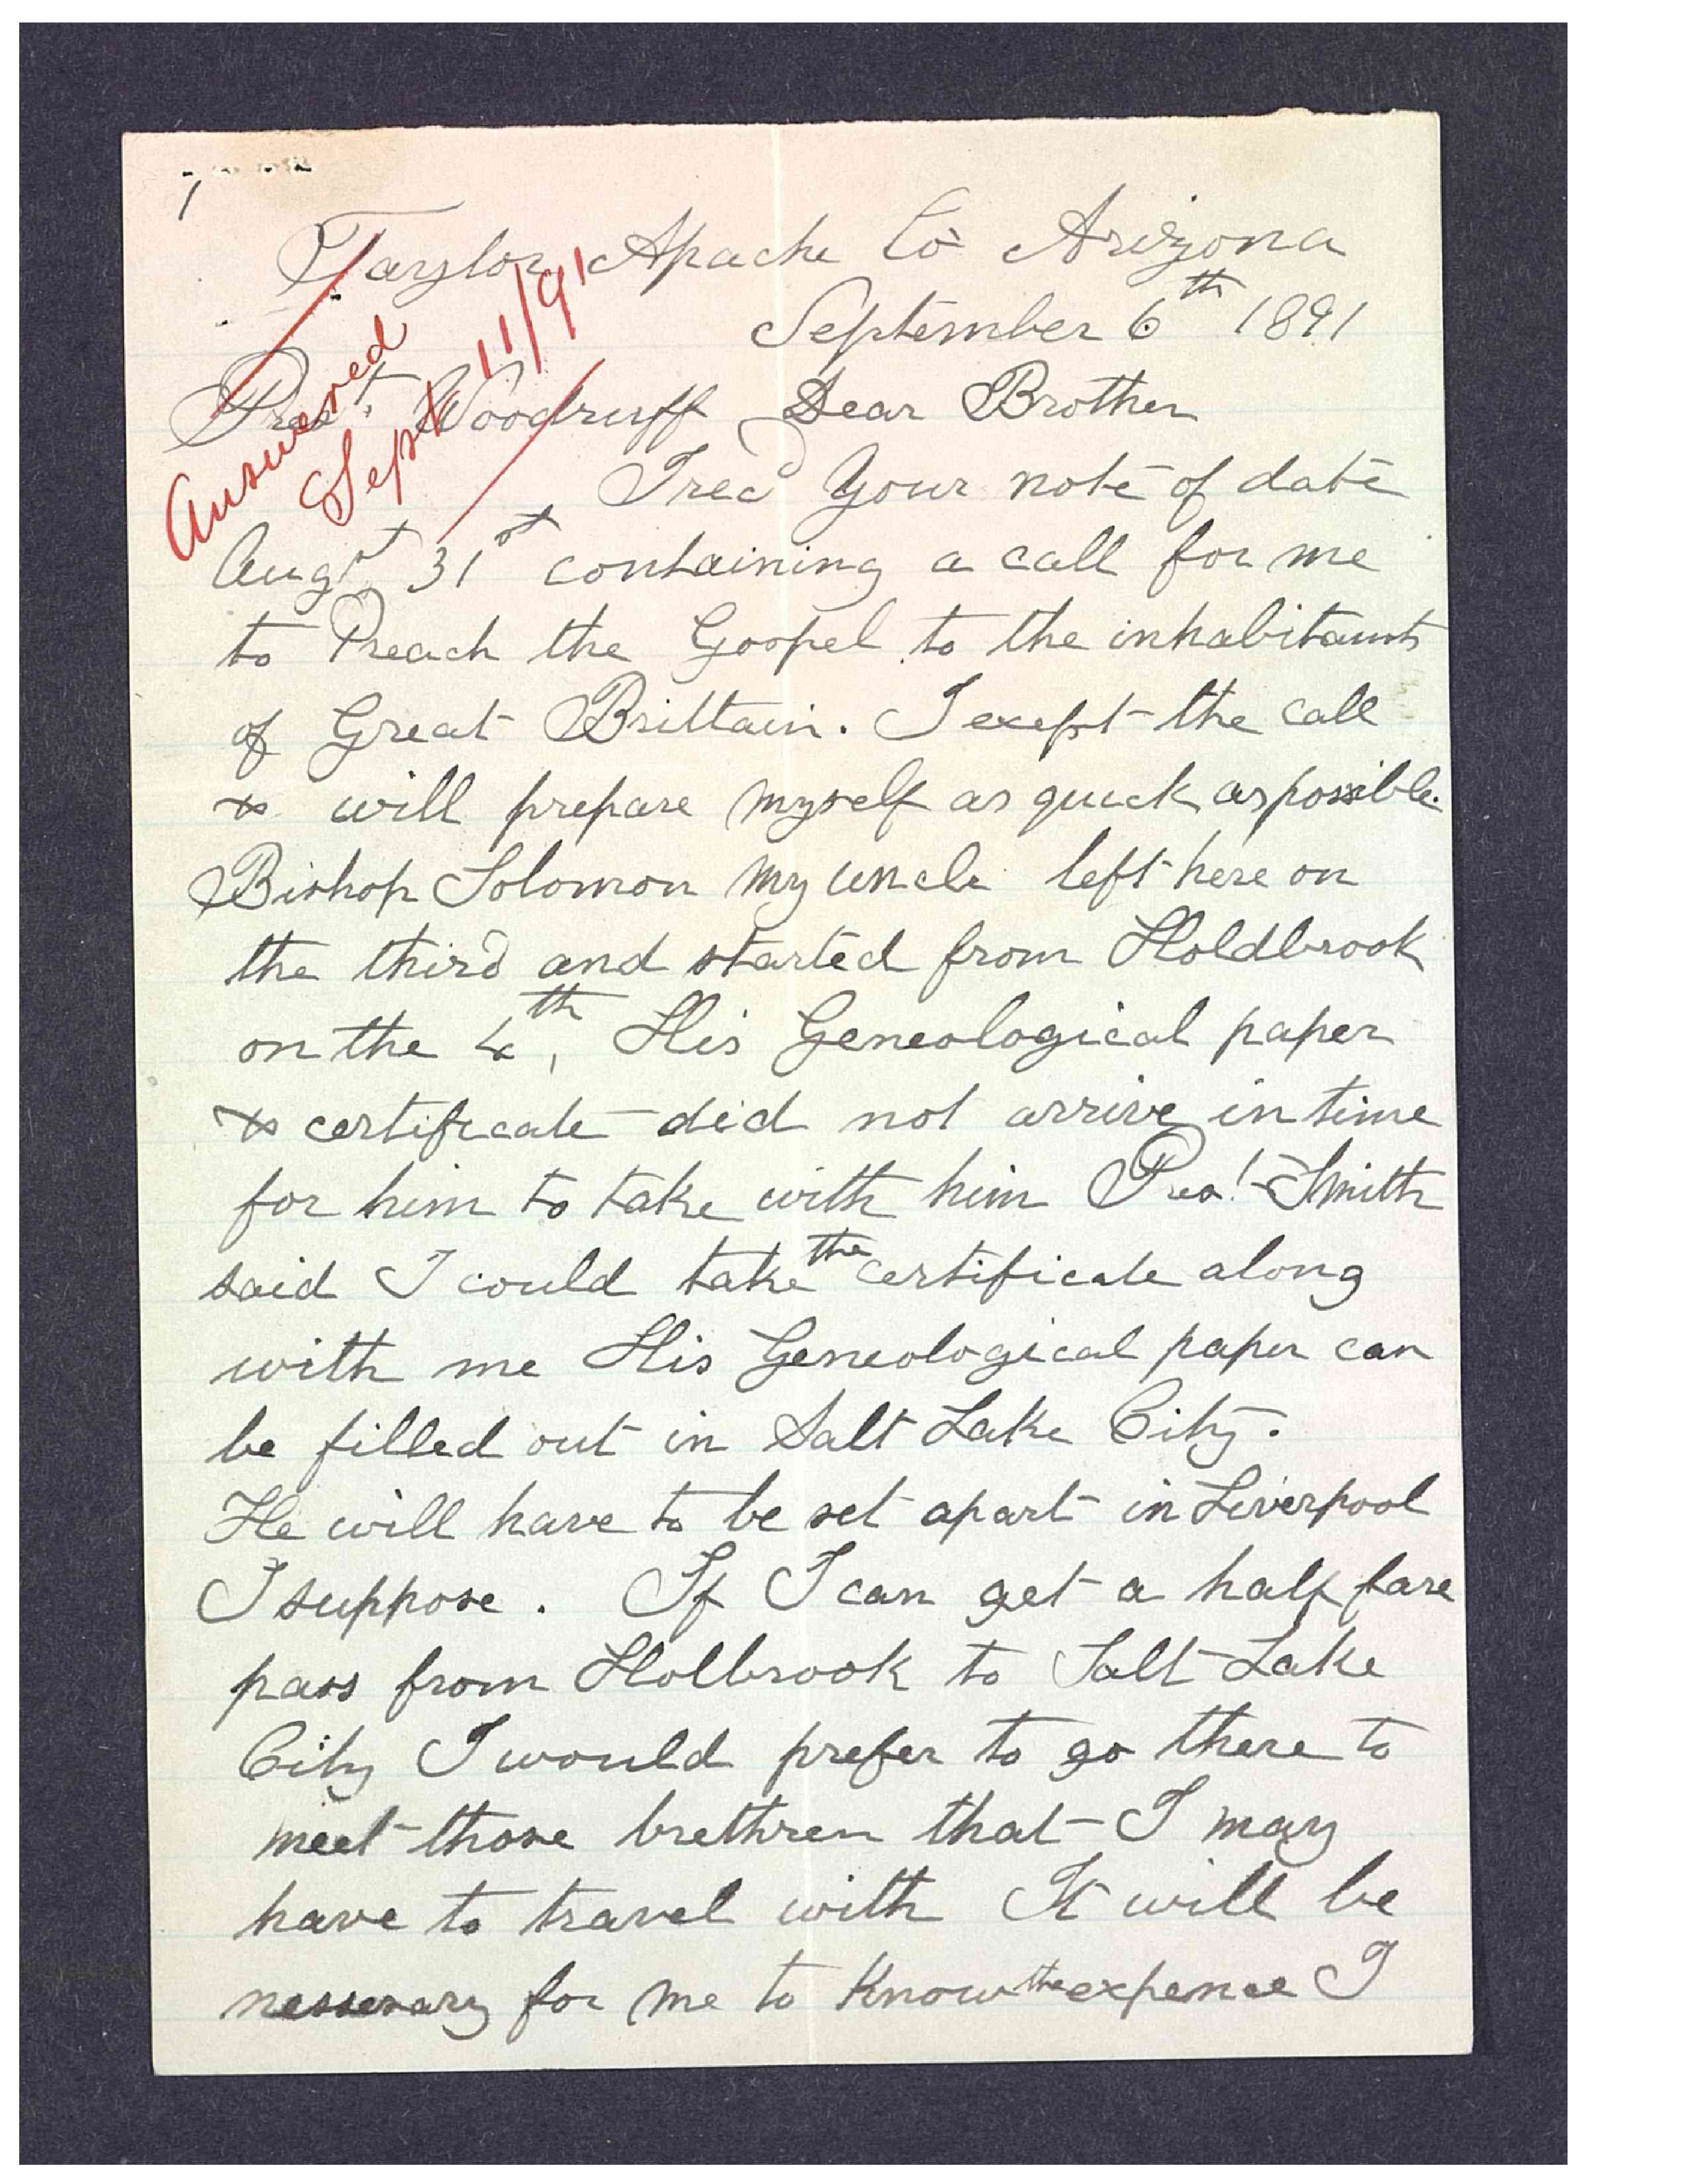 1
Taylor Apache Co Arizona
September 6th 1891
Answered
Sept 11/91
Prest. Woodruff Dear Brother
I recd Your note of date
Augst 31st containing a call for me
to Preach the Gospel to the inhabitants
of Great Brittain. I except the call
& will prepare myself as quick as possible.
Bishop Solomon my uncle left here on
the third and started from Holdbrook
on the 4th, His Geneological paper
& certificate did not arrive in time
for him to take with him Pres! Smith
said I could take the certificate along
with me His Geneological paper can
be filled out in Salt Lake City.
He will have to be set apart in Liverpool
I suppose. If I can get a half fare
pass from Holbrook to Salt Lake
City I would prefer to go there to
meet those brethren that I may
have to travel with It will be
nessesary for me to know the expence I